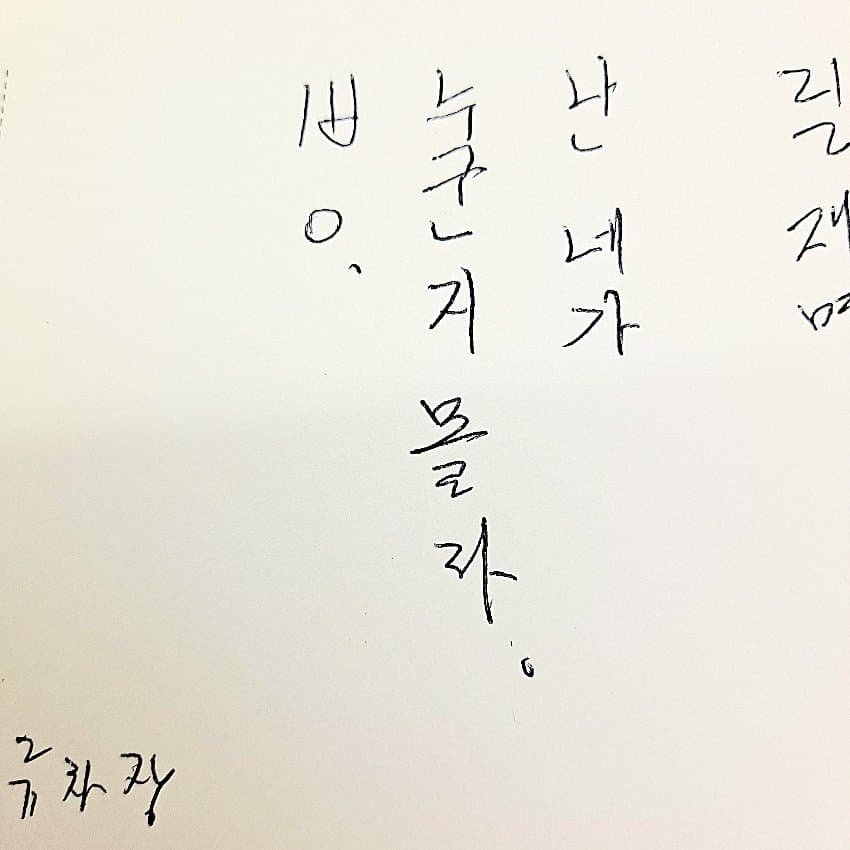 릴 재
난 네가
누군지 몰라.
류차장